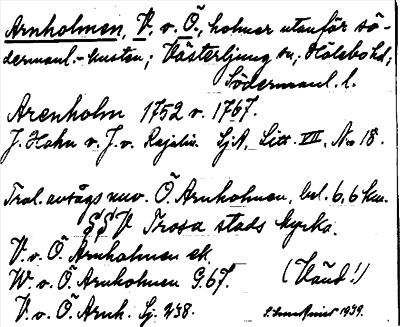 Arnholmen, V. o. Ö., holmer utanför sö-
dermanl.-kusten; Västerljung sn; Hölebo hd;
Södermanl. l.
Arenholm 1752 o. 1767.
J. Hahn o. J. v. Rajalin. Sj.A, Litt. VII, No 18.
Trol. avsågs nuv. Ö. Arnholmen, bel. 6,6 km.
SSV Trosa stads kyrka.
V. o. Ö. Arnholmen ek.
W. o. Ö. Arnholmen G. 67. (Händ!)
V. o. Ö. Arnh. Sj. 238. 1939.